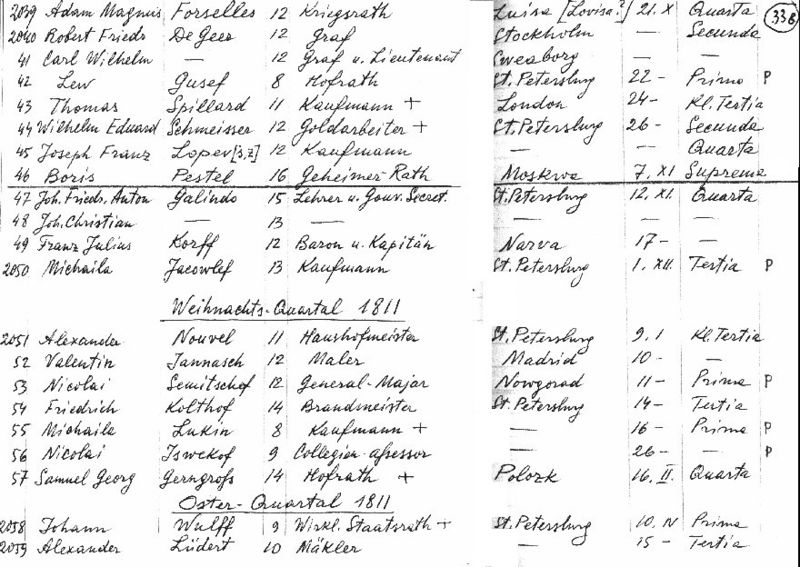 2039 Adam Magnus Forselles 12 Kriegsrath Luisa [Lovisa?] 21. X Quarta 338
2040 Robert Friedr. De Geer 12 Graf Stockholm — Secunda
41 Carl Wilhelm — 12 Graf u. Lieutenant Sweaborg — —
42 Lew Gusef 8 Hofrath St. Petersburg 22 - Prima P
43 Thomas Spillard 11 Kaufmann + London 24 - Kl. Tertia
44 Wilhelm Eduard Schmeisser 12 Goldarbeiter + St. Petersburg 26 - Secunda
45 Joseph Franz Lopev[s,z] 12 Kaufmann — — Quarta
46 Boris Pestel 16 Geheimer Rath Moskwa 7. XI Suprema
47 Joh. Friedr. Anton Galindo 15 Lehrer u. Gouv. Secret. St. Petersburg 12. XI. Quarta
48 Joh. Christian — 13 — — — —
49 Franz Julius Korff 12 Baron u. Kapitän Narva 17 - —
2050 Michaila Jacowlef 13 Kaufmann St. Petersburg 1. XII. Tertia P
Weihnachts-Quartal 1811
2051 Alexander Nouvel 11 Haushofmeister St. Petersburg 9. 1 Kl. Tertia
52 Valentin Jannasch 12 Maler Madrid 10 - —
53 Nicolai Semitschef 12 General-Major Nowgorod 11 - Prima P
54 Friedrich Kolthof 14 Brandmeister St. Petersburg 14 - Tertia
55 Michaila Lukin 8 Kaufmann + — 16 - Prima P
56 Nicolai Iswekof 9 Collegien-assessor — 26 - — P
57 Samuel Georg Gerngross 14 Hofrath + Polozk 16. II. Quarta
Oster-Quartal 1811
2058 Johann Wulff 9 Wirkl. Staatsrath + St. Petersburg 10. IV Prima
2059 Alexander Lüdert 10 Mäkler — 15 - Tertia